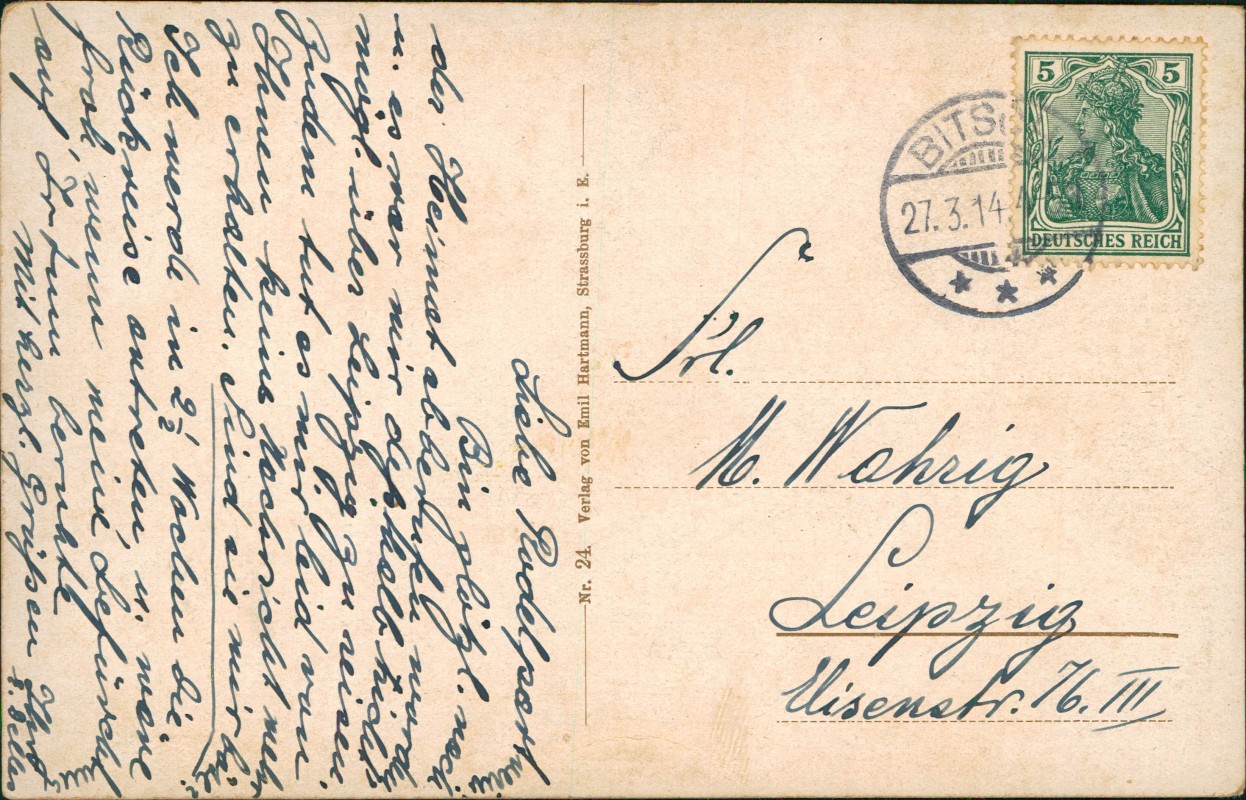 Liebe Rodelpartnerin
Bin plötzl. nach
der Heimat abberufen wurde
u. es war mir deßhalb nicht
mögl. über Leipzig zu reisen.
Zudem tut es mir leid von
Ihnen keine Nachricht mehr
zu erhalten. Sind sie mir böse?
Ich werde in 2 1/2 Wochen die
Rückreise antreten, u. wäre
froh, wenn meine Befürcht
auf Irrtum beruhte
Mit herzl. Grüßen Ihr
Nr. 24. Verlag von Emil Hartmann, Strassburg i. E.
5 5
DEUTSCHES REICH
BITSCH
27.3.14
Frl.
M. Wahrig
Leipzig
Elisenstr. 76. III